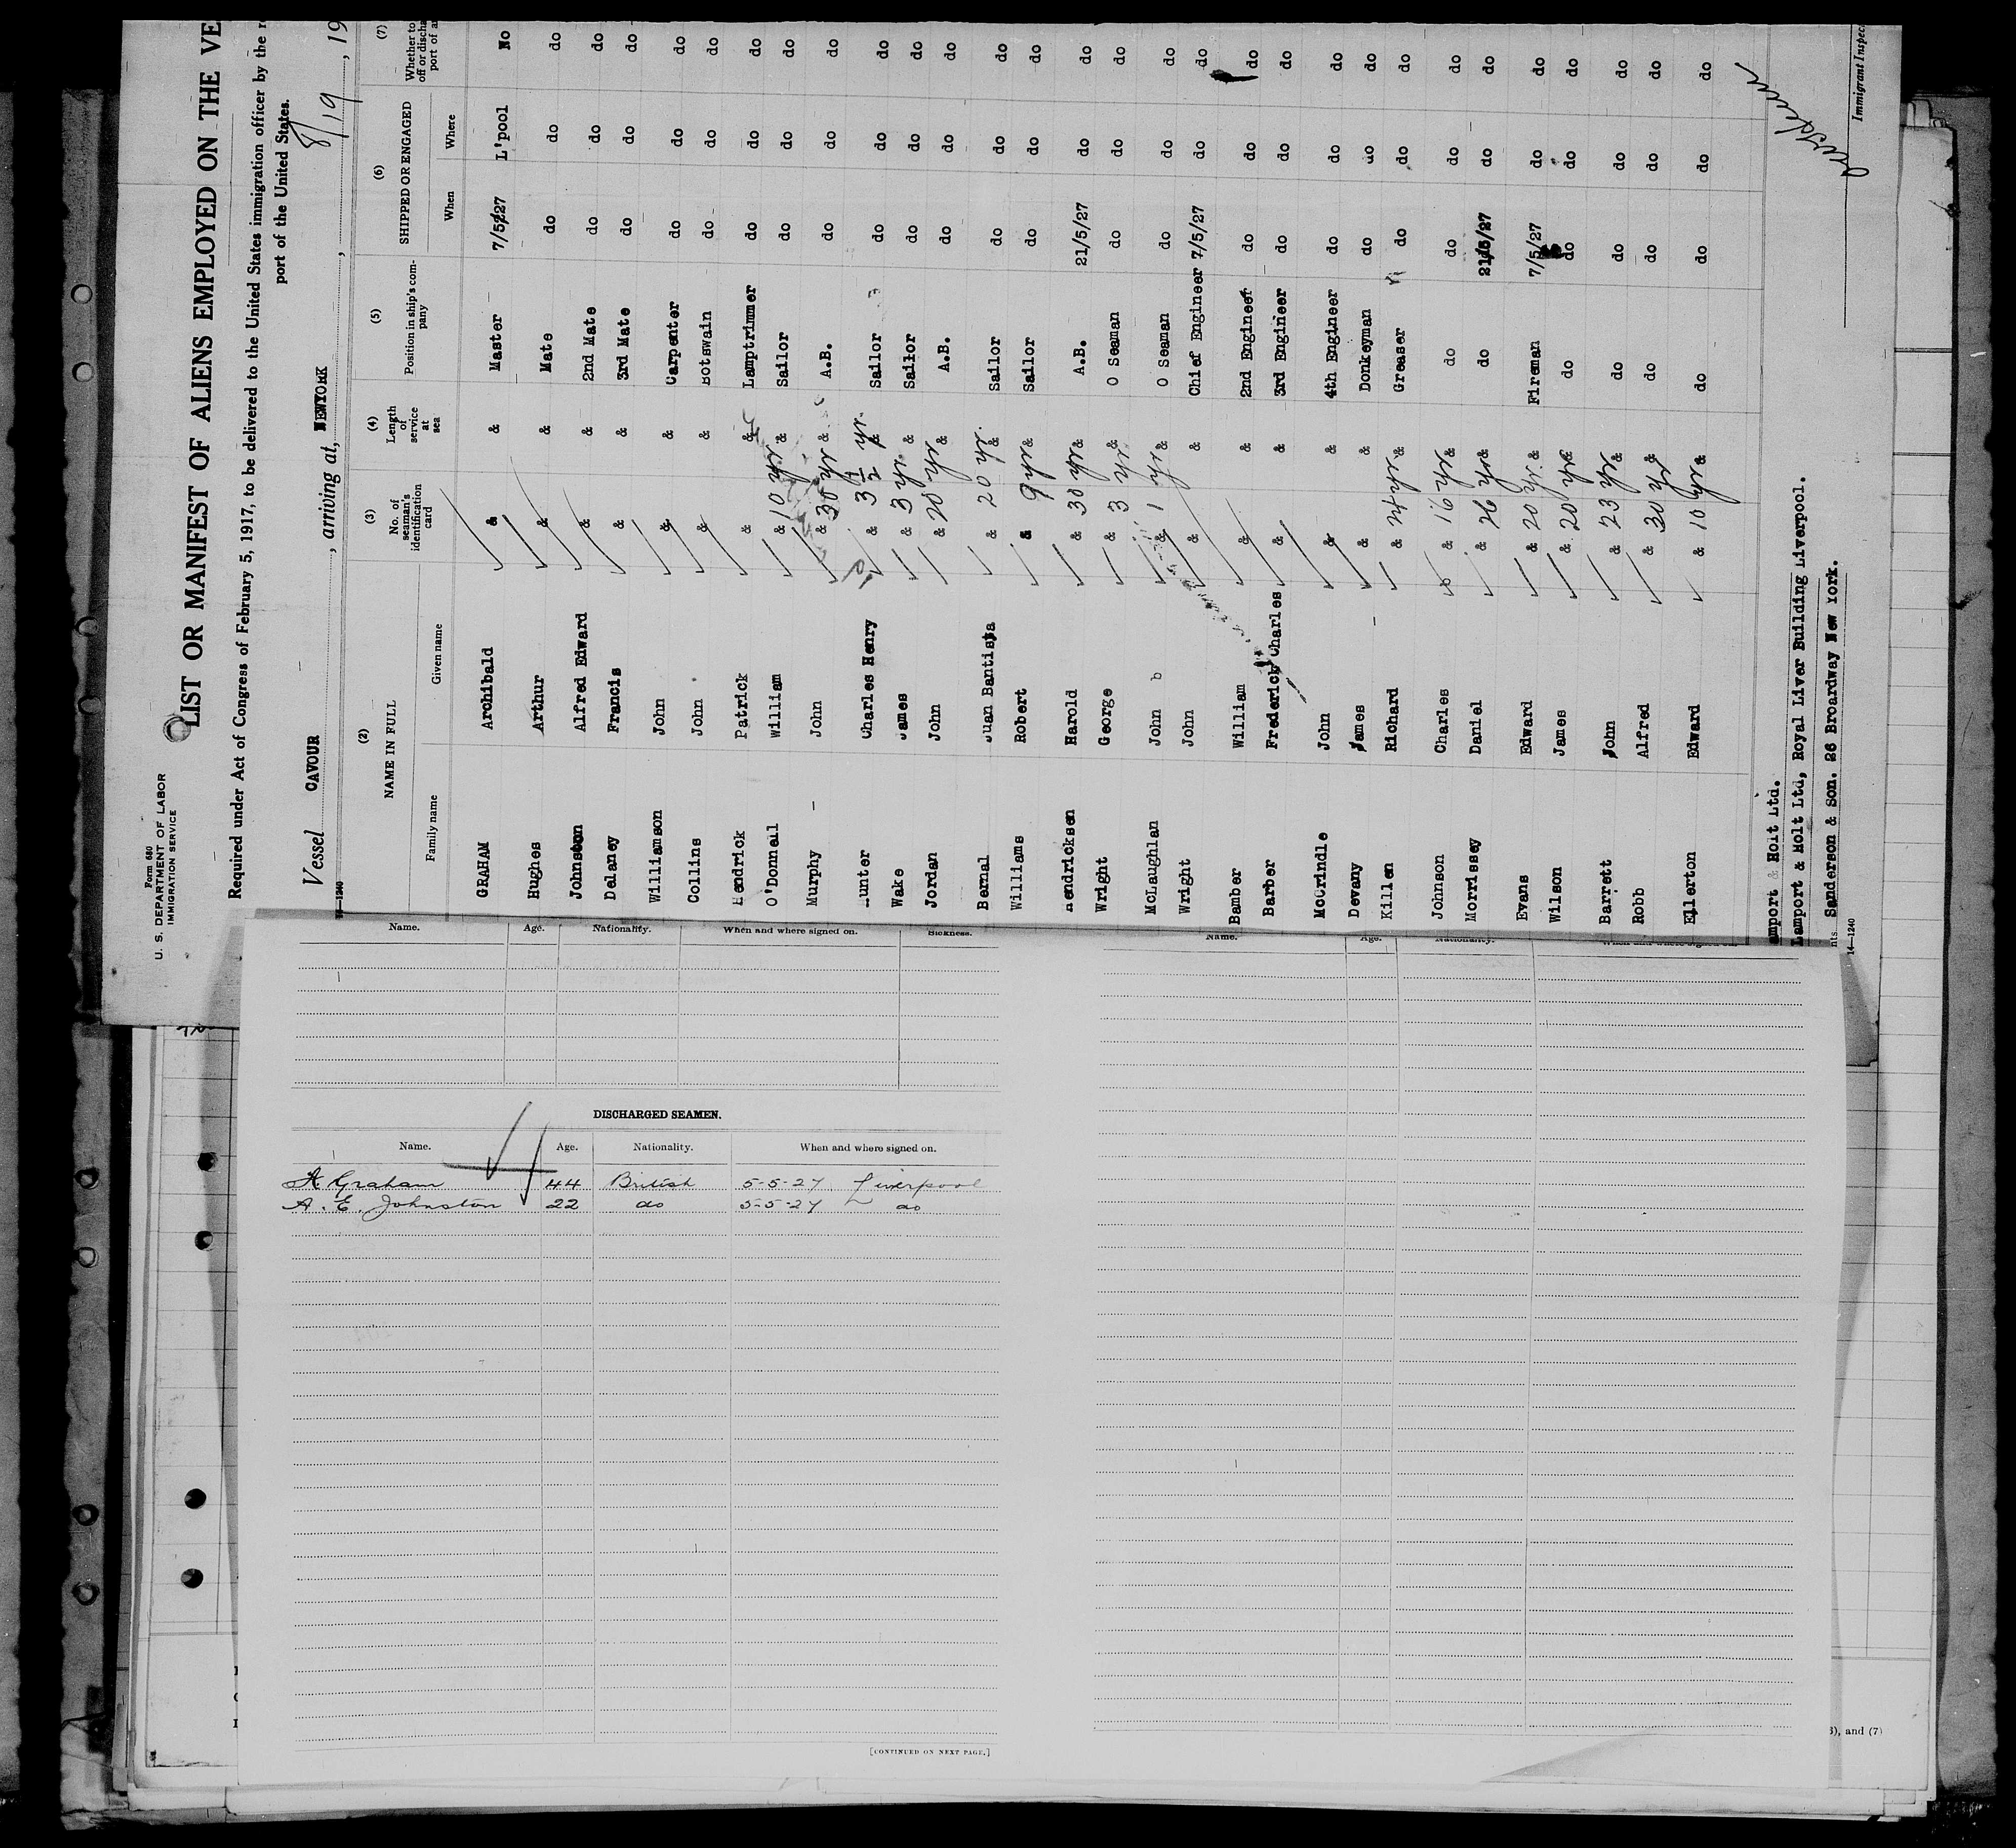 Form 680
U. S. DEPARTMENT OF LABOR
IMMIGRATION SERVICE
LIST OR MANIFEST OF ALIENS EMPLOYED ON THE VE
Required under Act of Congress of February 5, 1917, to be delivered to the United States immigration officer by the r
port of the United States.
Vessel CAVOUR , arriving at, NEWYORK , 8/19 , 19
14—1240
(2) NAME IN FULL (3) No. of seaman's identification card (4) Length of service at sea (5) Position in ship's company (6) SHIPPED OR ENGAGED (7) Whether to off or discha port of a
Family name Given name When Where
GRAHAM Archibald & & Master 7/5/27 L'pool No
Hughes Arthur & & Mate do do do
Johnston Alfred Edward & & 2nd Mate do do do
Delaney Francis & & 3rd Mate do do do
Williamson John & & Carpenter do do do
Collins John & & Botswain do do do
Hendrick Patrick & & Lamptrimmer do do do
O'Donnell William & 10 yr & Sailor do do do
Murphy John & 30 yr & A.B. do do do
Hunter Charles Henry & 3 1/2 yr. & Sailor do do do
Wake James & 3 yr. & Sailor do do do
Jordan John & 20 yr & A.B. do do do
Bernal Juan Bantista & 20 yr. & Sailor do do do
Williams Robert & 9 yr & Sailor do do do
Hendricksen Harold & 30 yr & A.B. 21/5/27 do do
Wright George & 3 yr & O Seaman do do do
McLaughlan John b & 1 yr & O Seaman do do do
Wright John & & Chief Engineer 7/5/27 do do
Bamber William & & 2nd Engineer do do do
Barber Frederick Charles & & 3rd Engineer do do do
McCrindle John & & 4th Engineer do do do
Devany James & & Donkeyman do do do
Killen Richard & yr & Greaser do do do
Johnson Charles & 16 yr & do do do do
Morrissey Daniel & 26 yr & do 21/5/27 do do
Evans Edward & 20 yr. & Fireman 7/5/27 do do
Wilson James & 20 yr & do do do do
Barrett John & 23 yr & do do do do
Robb Alfred & 30 yr & do do do do
Ellerton Edward & 10 yr & do do do do
amport & Holt Ltd.
Lamport & Holt Ltd, Royal Liver Building Liverpool.
nts. Sanderson & Son. 26 Broardway New York.
14—1240
Immigrant Inspec
Name. Age. Nationality. When and where signed on. Sickness.
Name. Age. Nationality. When and where signed on.
DISCHARGED SEAMEN.
Name. Age. Nationality. When and where signed on.
A Graham 44 British 5-5-27 Liverpool
A. E. Johnston 22 do 5-5-27 do
[CONTINUED ON NEXT PAGE.]
), and (7)